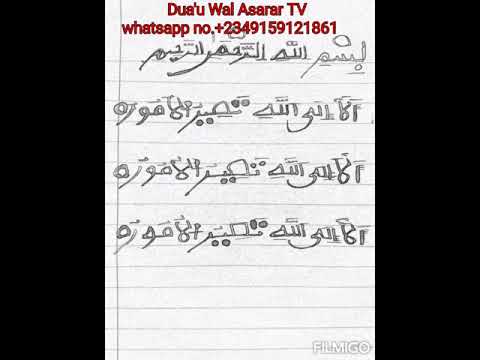 Dua'u Wal Asarar TV
whatsapp no.+2349159121861
بِسْمِ اللَّهِ الرَّحْمَنِ الرَّحِيمِ
أَلَا إِلَى اللَّهِ تَصِيرُ الْأُمُورُ
أَلَا إِلَى اللَّهِ تَصِيرُ الْأُمُورُ
أَلَا إِلَى اللَّهِ تَصِيرُ الْأُمُورُ
FILMIGO